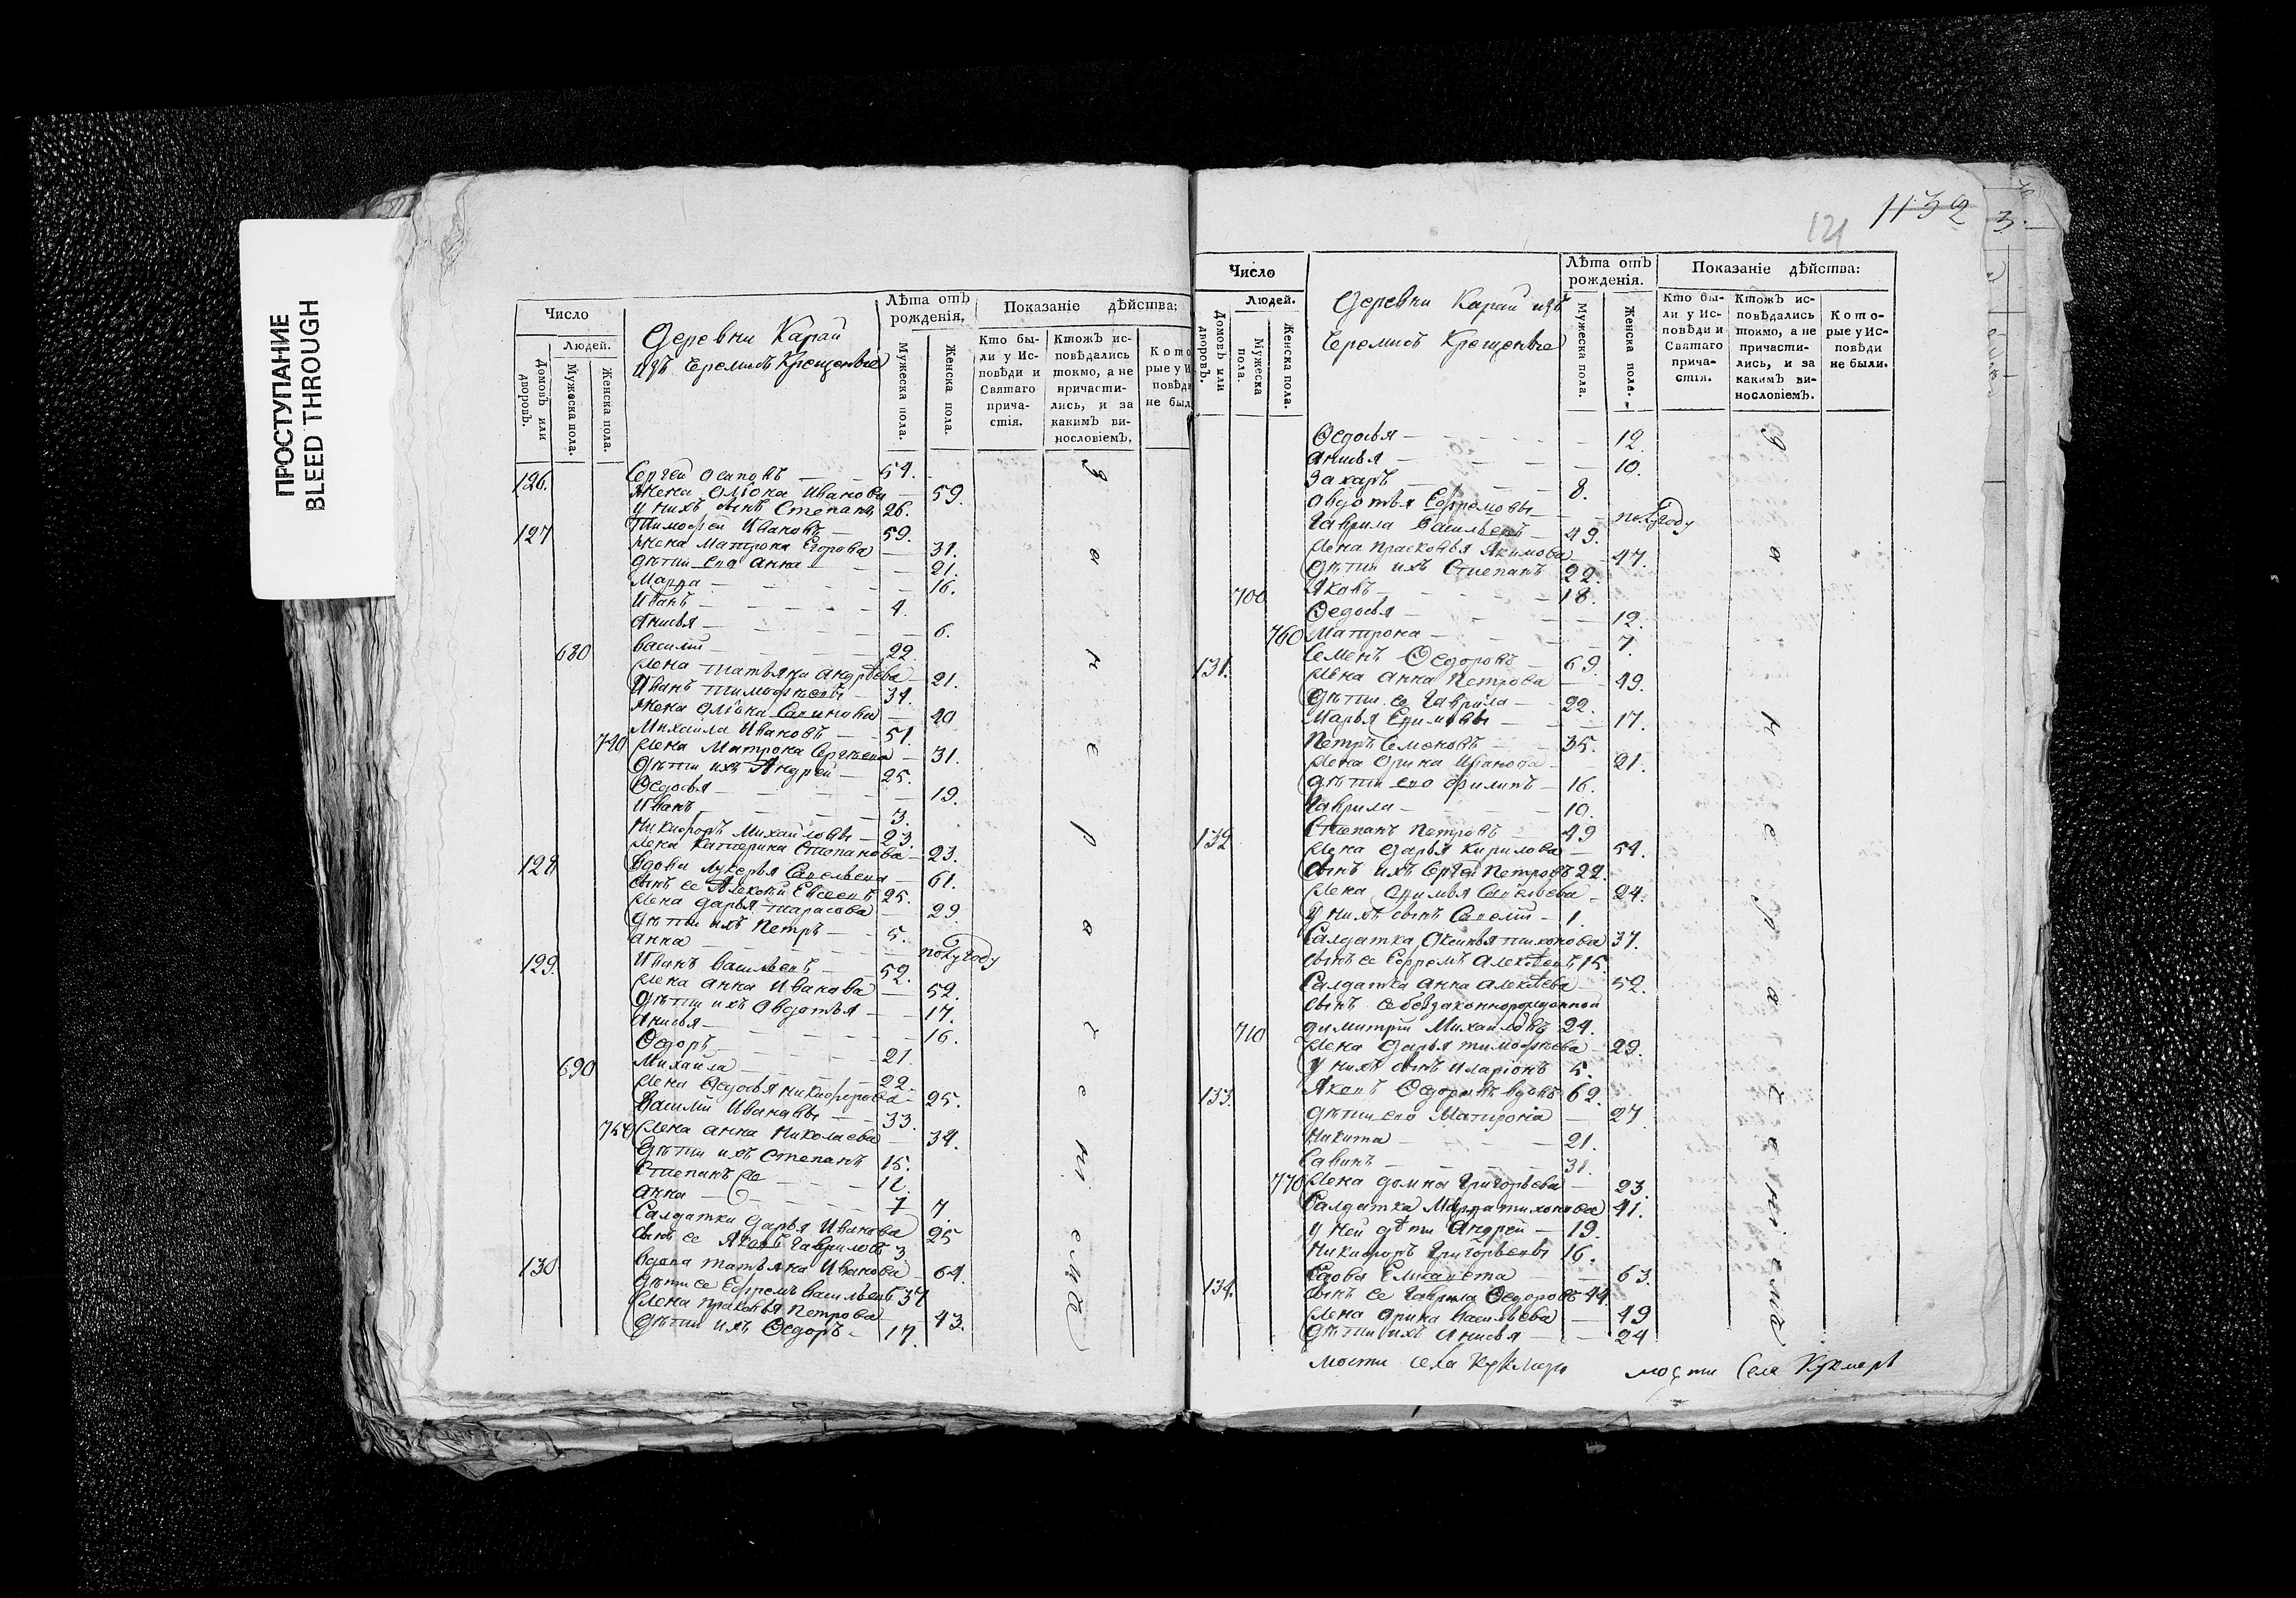 ПРОСТУПАНИЕ
BLEED THROUGH
Число
Людей.
Домовъ или дворовъ.
Мужеска пола.
Женска пола.
Деревни Карай
изъ Черемисъ Крещеные
Лѣта отъ рожденія.
Мужеска пола.
Женска пола.
Показаніе дѣйства:
Кто бы-
ли у Ис-
повѣди и
Святаго
прича-
стія.
Ктожъ ис-
повѣдались
токмо, а не
причасти-
лись, и за
какимъ ви-
нословіемъ.
126. Сергей Осиповъ 54.
Жена Олiона Иванова 59.
у нихъ сынъ Степанъ 26.
127 Тимофей Ивановъ 59.
жена Матрона Егорова 31.
дѣти его Анна 21.
Марфа 16.
Иванъ 4.
Анисья 6.
680 Василій 22
жена Татьяна Андрѣева 21.
Иванъ Тимофѣевъ 34.
Жена Олiона 40
Михаила Ивановъ 51.
740 жена Матрона Сергѣева 31.
дѣти ихъ Андрей 25.
Ѳедосья 19.
Иванъ 3.
Никифоръ Михайловъ 23.
жена Катерина Степанова 23.
128 вдова Лукерья Савельева 61.
сынъ ее Алексѣй Евсеевъ 25.
жена Дарья Тарасова 29.
дѣти ихъ Петръ 5.
Анна полугоду
129. Иванъ Васильевъ 52.
жена Анна Иванова 52.
дѣти ихъ Авдотья 17.
Анисья 16.
Ѳедоръ 21.
690 Михаила 22.
жена Ѳедосья Никифорова 25.
Василій Ивановъ 33.
750 жена Анна Николаева 34.
дѣти ихъ Степанъ 15.
Степанъ же 12.
Анна 7 7
Салдатка Дарья Иванова 25
сынъ ее Яковъ Гавриловъ 3
130 вдова Татьяна Иванова 64.
дѣти ее Ефремъ Васильевъ 37
жена Прасковья Петрова 43.
дѣти ихъ Ѳедоръ 17.
1132
121
3.
Число
Людей.
Домовъ или дворовъ.
Мужеска пола.
Женска пола.
Деревни Карай изъ
Черемисъ Крещеные
Лѣта отъ рожденія.
Мужеска пола.
Женска пола.
Показаніе дѣйства:
Кто бы-
ли у Ис-
повѣди и
Святаго
прича-
стія.
Ктожъ ис-
повѣдались
токмо, а не
причасти-
лись, и за
какимъ ви-
нословіемъ.
Кото-
рые у Ис-
повѣди
не были.
Ѳедосья 12.
Анисья 10.
Захаръ 8.
Авдотья Ефремовы полугоду
Гаврила Васильевъ 49.
жена Прасковья Якимова 47.
дѣти ихъ Степанъ 22.
700 Яковъ 18.
Ѳедосья 12.
760 Матрона 7.
131. Семенъ Ѳедоровъ 69.
жена Анна Петрова 49.
дѣти ее Гаврила 22.
Марья 17.
Петръ Семеновъ 35.
жена Орина Иванова 21.
дѣти его Филипъ 16.
Гаврила 10.
132 Степанъ Петровъ 49
жена Дарья Кирилова 54.
сынъ ихъ Сергей Петровъ 22.
жена Савельева 24.
у нихъ сынъ 1.
Салдатка Тихонова 37.
сынъ ее Ефремъ Алексѣевъ 15.
Салдатка Анна Алексѣева 52.
сынъ ее беззаконнорожденной
710 Димитрій Михайловъ 24.
жена Дарья Тимофѣева 29.
у нихъ сынъ Иларіонъ 5.
133. Яковъ Ѳедоровъ вдовъ 62.
дѣти его Матрона 27
Никита 21.
Савинъ 31.
770 жена Домна Григорьева 23.
Салдатка Марфа Тихонова 41.
у ней дѣти Андрей 19.
Никифоръ Григорьевы 16.
134. вдова Елисавета 63.
сынъ ее Гаврила Ѳедоровъ 44.
жена Орина Васильева 49
дѣти ихъ Анисья 24
мости села Кукморъ мости Села Кукморъ